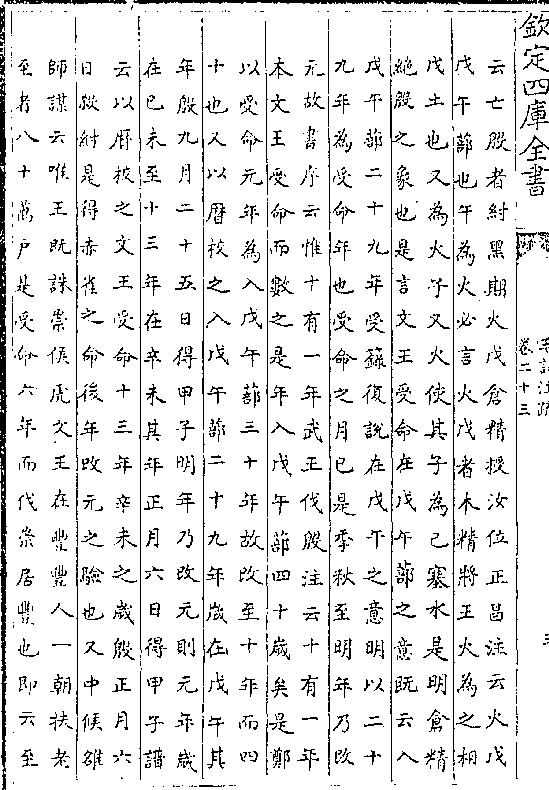 欽定四庫全書
毛詩注疏
卷二十三
云亡殷者紂黑期火戊倉精授汝位正昌注云火戊
戊午蔀也午為火必言火戊者木精將王火為之相
戊土也又為火子又火使其子為己塞水是明倉精
絕殷之象也是言文王受命在戊午蔀之意既云入
戊午蔀二十九年受籙復說在戊午之意明以二十
九年為受命年也受命之月已是季秋至明年乃改
元故書序云惟十有一年武王伐殷注云十有一年
本文王受命而數之是年入戊午蔀四十歲矣是鄭
以受命元年為入戊午蔀三十年故改至十年而四
十也又以曆校之入戊午蔀二十九年歲在戊午其
年殷九月二十五日得甲子明年乃改元則元年歲
在已未至十三年在辛未其年正月六日得甲子譜
云以曆校之文王受命十三年辛未之歲殷正月六
日殺紂是得赤雀之命後年改元之驗也又中候雒
師謀云唯王既誅崇侯虎文王在豐豐人一朝扶老
至者八十萬戶是受命六年而伐崇居豐也即云至